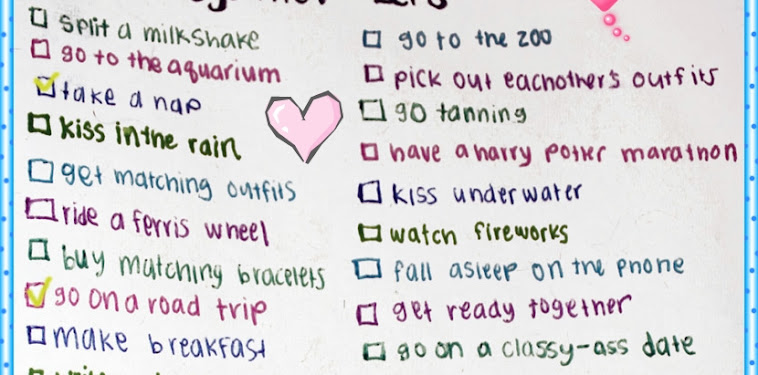 split a milkshake
go to the aquarium
take a nap
kiss in the rain
get matching outfits
ride a ferris wheel
buy matching bracelets
go on a road trip
make breakfast
go to the zoo
pick out eachother's outfits
go tanning
have a harry potter marathon
kiss underwater
watch fireworks
fall asleep on the phone
get ready together
go on a classy-ass date